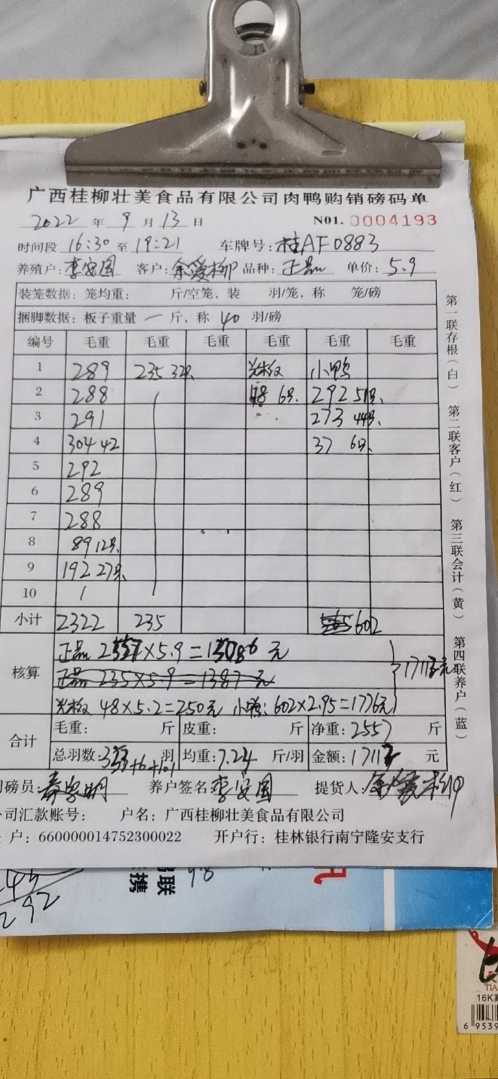 广西桂柳壮美食品有限公司肉鸭购销磅码单
2022 年 9 月 13 日 NO1. 0004193
时间段 16:30 至 19:21 车牌号: 桂AF0883
养殖户: 李安国 客户: 余爱柳 品种: 正品 单价: 5.9
装笼数据: 笼均重: 斤/空笼, 装 羽/笼, 称 笼/磅
捆脚数据: 板子重量 一 斤, 称 40 羽/磅
编号 毛重 毛重 毛重 毛重 毛重 毛重
1 289 235 32只 小鸭
2 288 48 6只 292 51只
3 291 273 44只
4 304 42 37 6只
5 292
6 289
7 288
8 89 12只
9 192 27只
10
小计 2322 235 602
核算
正品 2557×5.9=15086 元
正品 235×5.9=1387 元
48×5.2=250元 小鸭: 602×2.95=1776元
合计
毛重: 斤 皮重: 斤 净重: 2557 斤
总羽数: 羽 均重: 7.24 斤/羽 金额: 元
司磅员: 养户签名 李安国 提货人: 余爱柳
公司汇款账号: 户名: 广西桂柳壮美食品有限公司
户: 660000014752300022 开户行: 桂林银行南宁隆安支行
第一联存根(白) 第二联客户(红) 第三联会计(黄) 第四联养户(蓝)
292
9.8
联
携
TIA
16K
6 9539